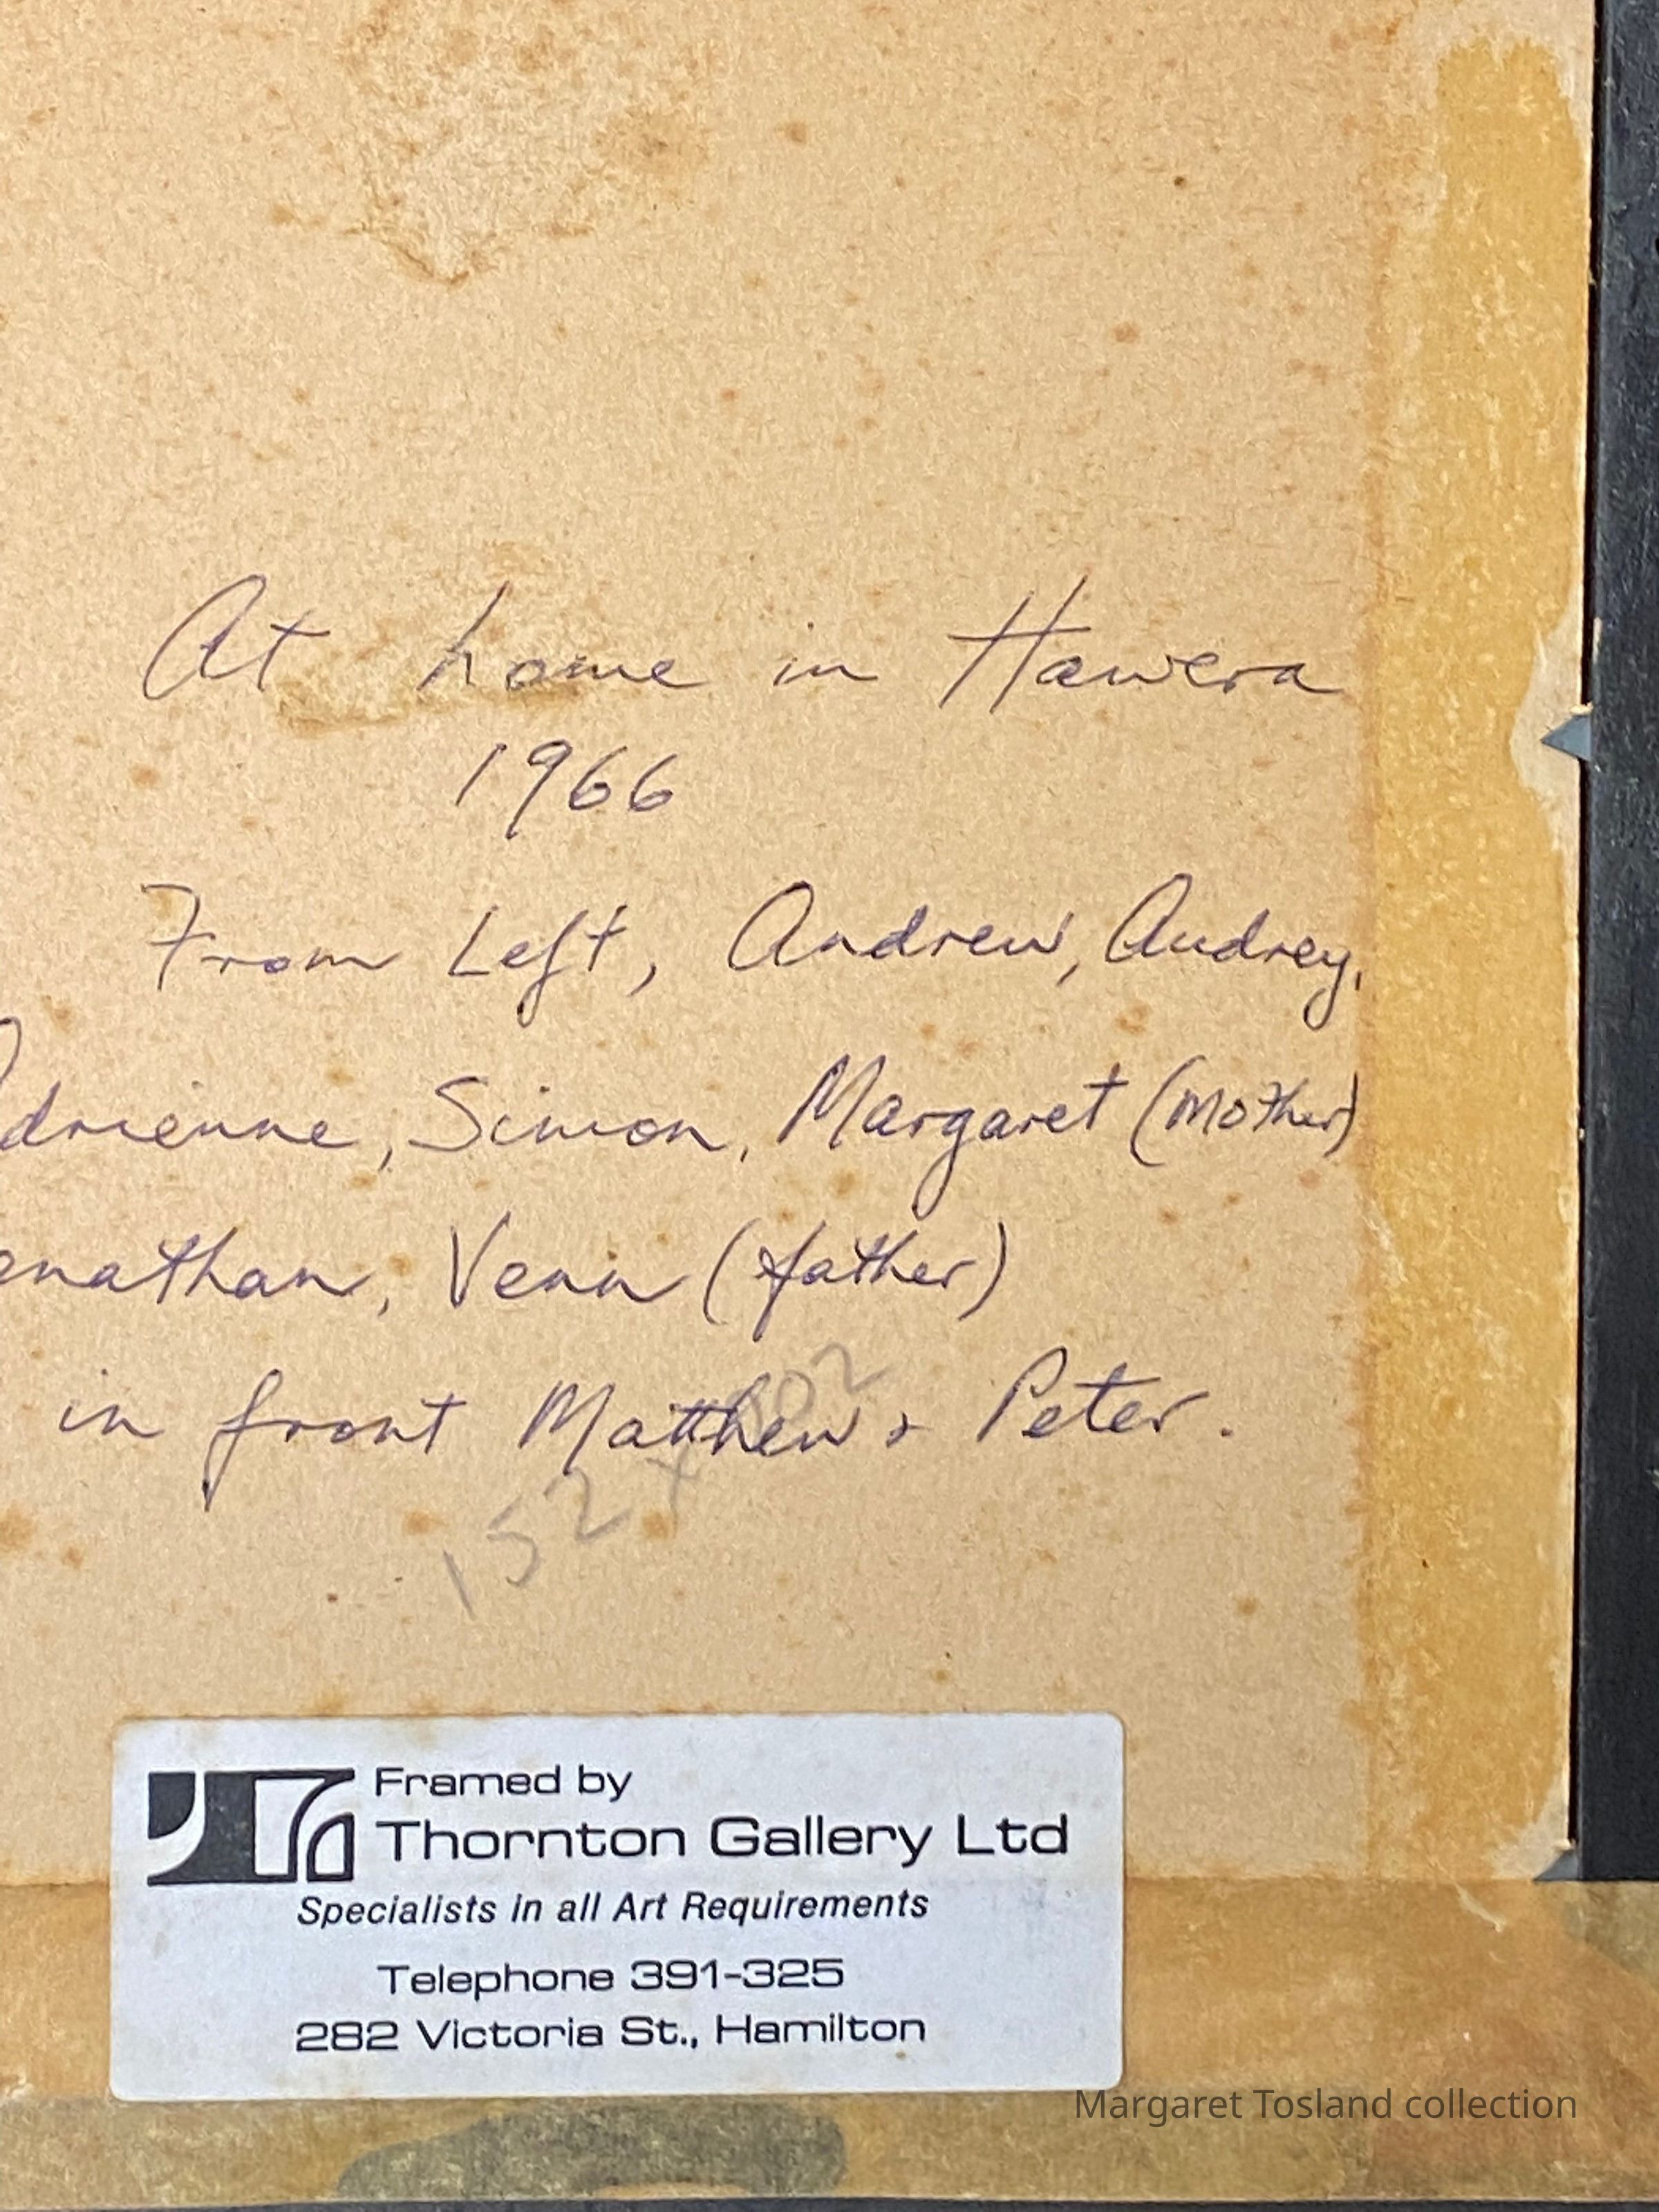 At home in Hawera
1966
From Left, Andrew, Audrey,
drienne, Simon, Margaret (Mother)
onathan, Venn (father)
in front Matthew & Peter.
152 x
Framed by
Thornton Gallery Ltd
Specialists in all Art Requirements
Telephone 391-325
282 Victoria St., Hamilton
Margaret Tosland collection